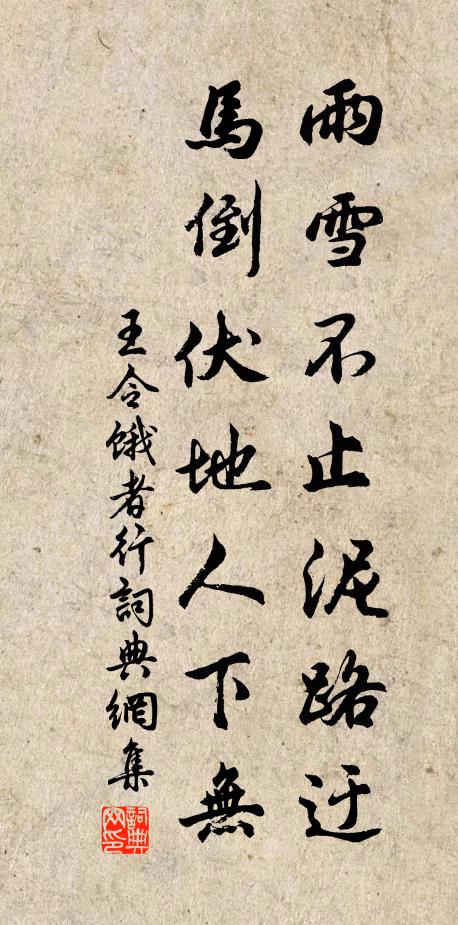 雨雪不止泥路迂
馬倒伏地人下無
王令餓者行詞典網集
詞典網印